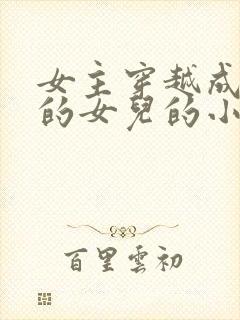 女主穿越成
的女兒的小
百里雲初